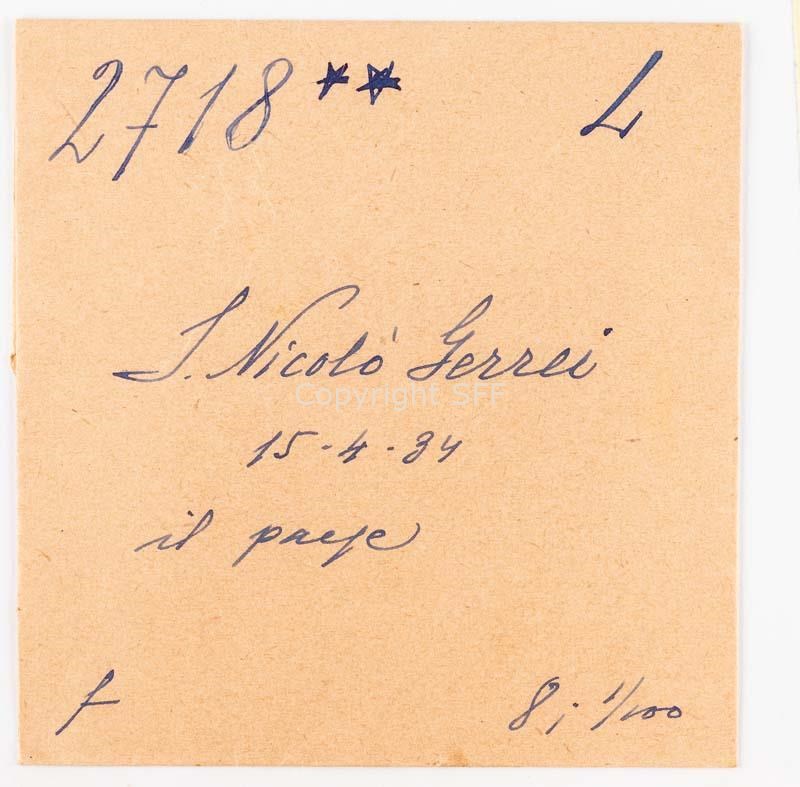 2718** L
S. Nicolò Gerrei
Copyright SFF
15-4-34
il paese
f 8; 1/100